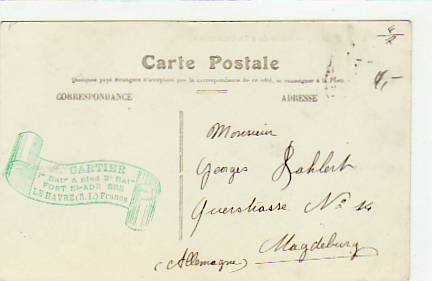 Carte Postale
Quelques pays étrangers n'acceptant pas la correspondance de ce côté, se renseigner à la Poste
CORRESPONDANCE
ADRESSE
CARTIER
FORT
LE HAVRE (S. I.) France
Monsieur
Georges Rahlert
Querstrasse No 14
Magdeburg
(Allemagne)